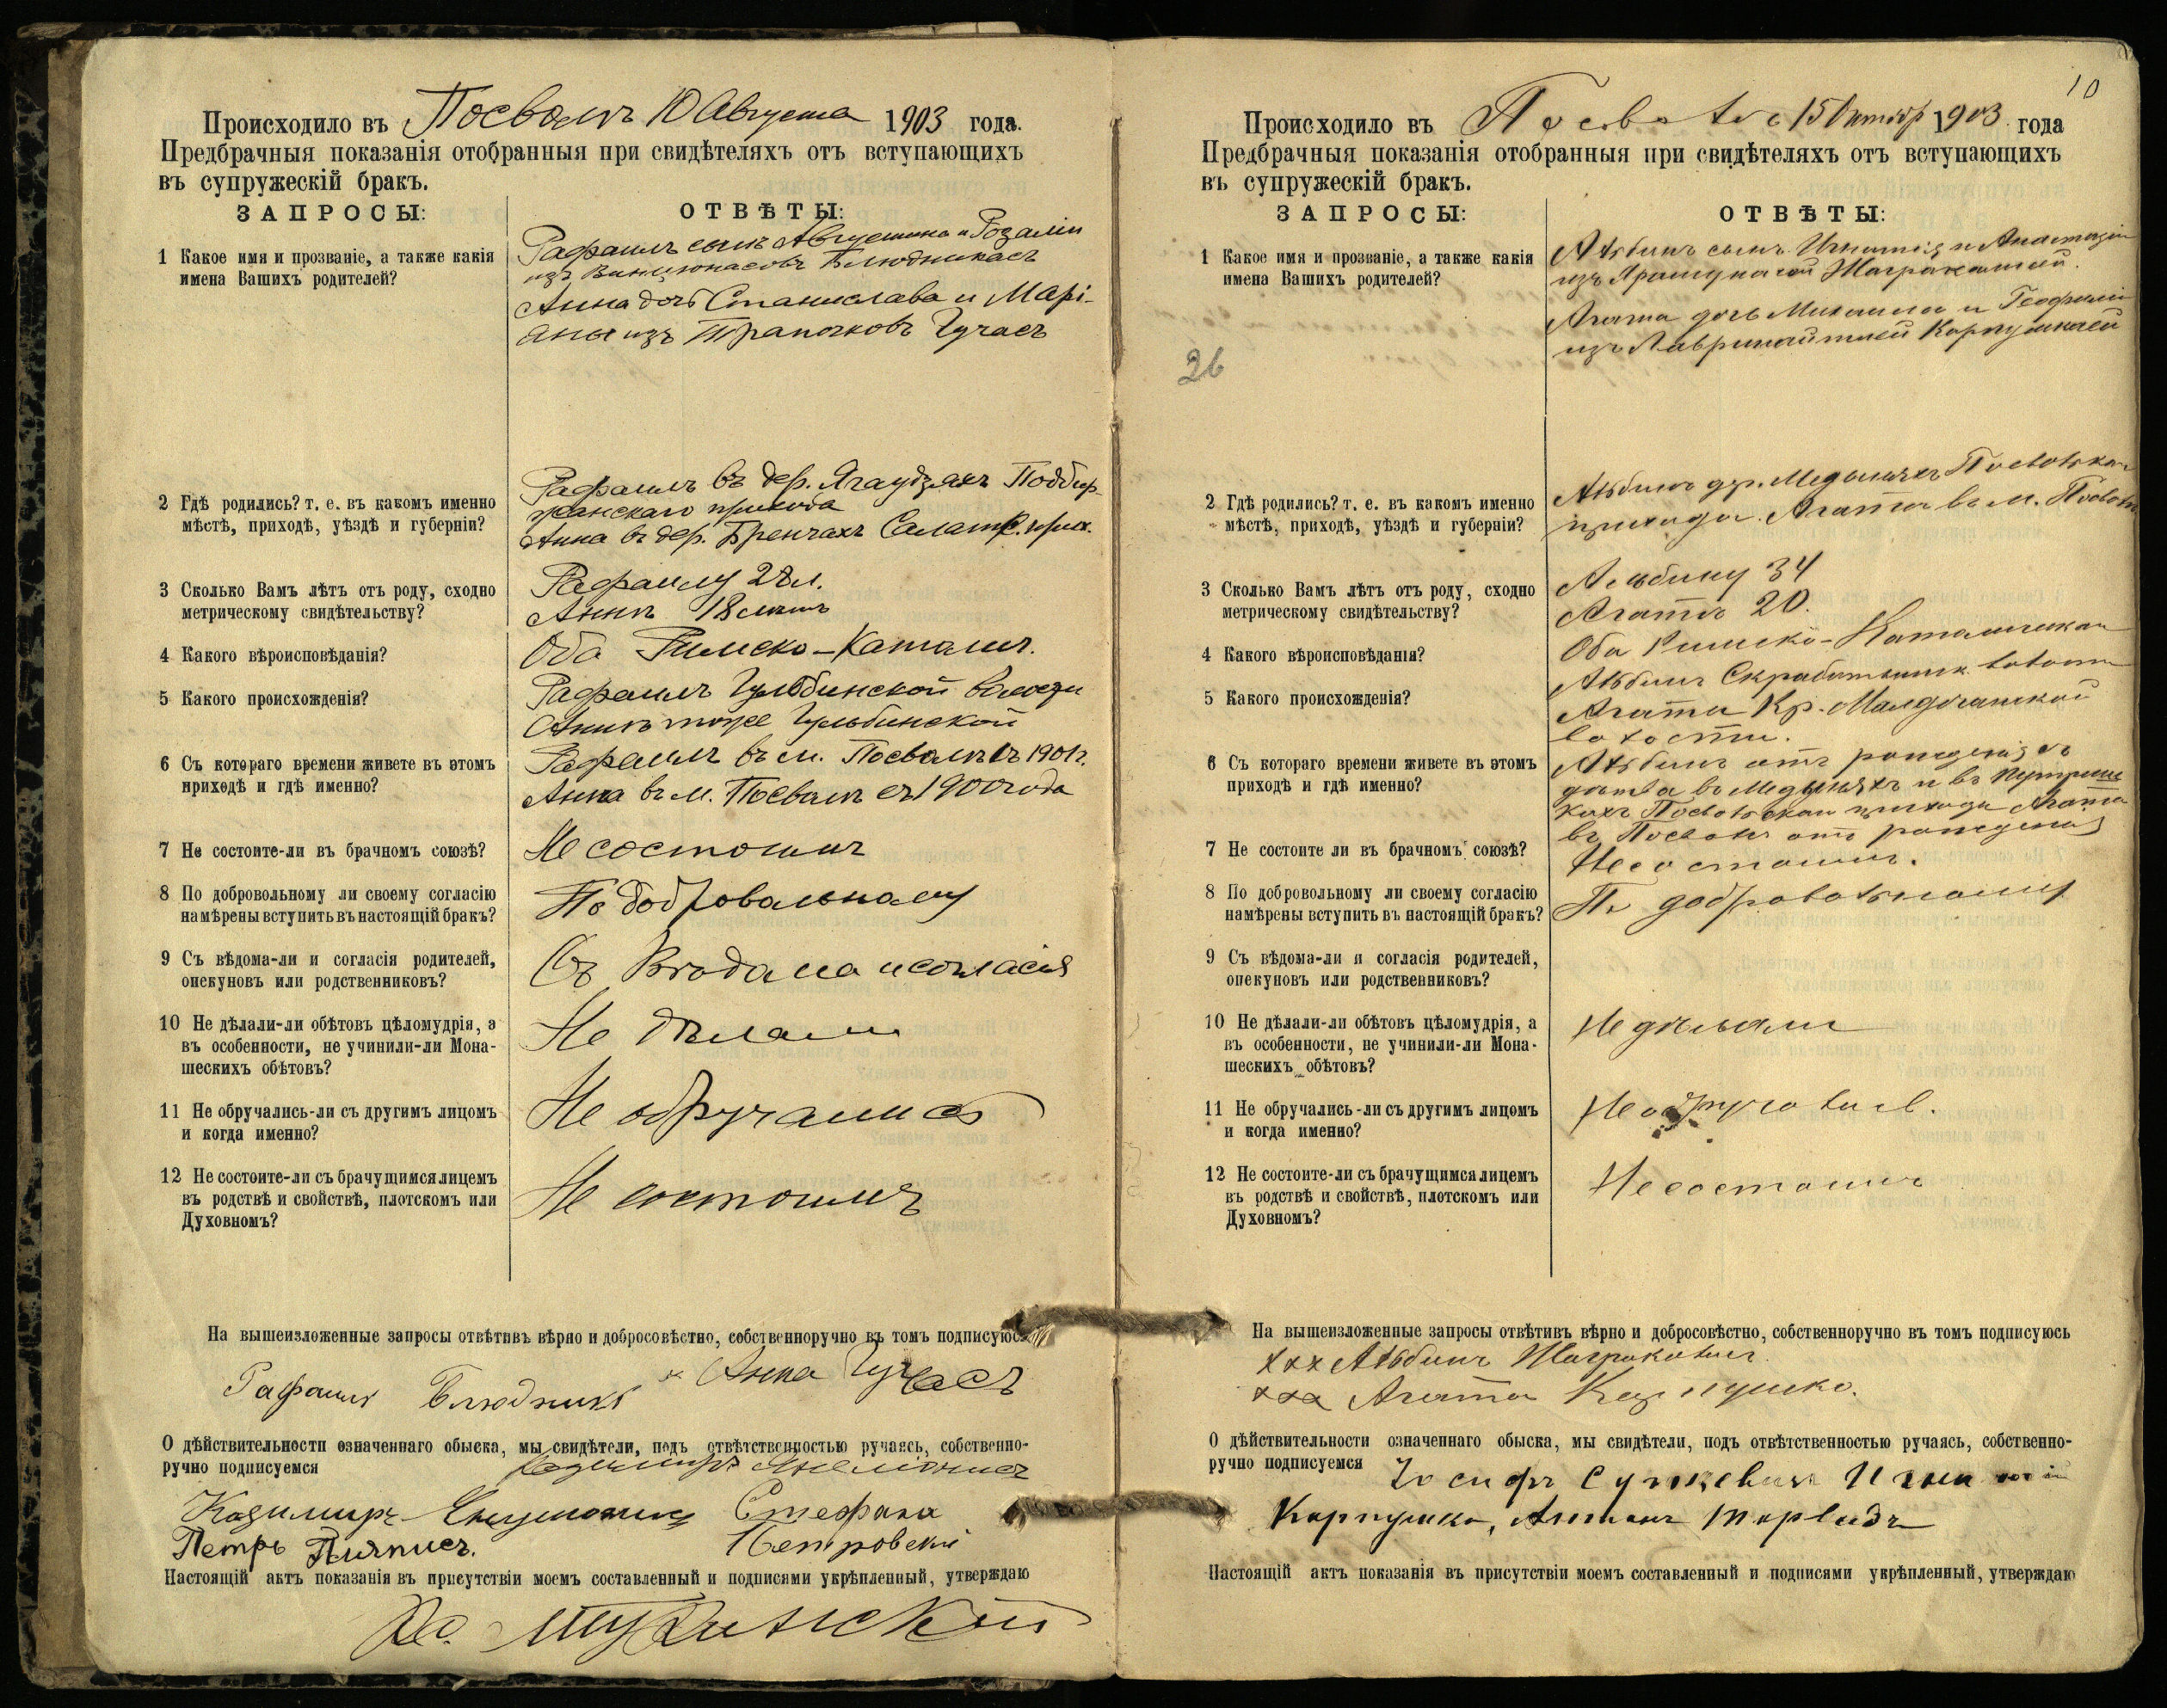 Происходило въ Посволѣ 10 Августа 1903 года.
Предбрачныя показанія отобранныя при свидѣтеляхъ отъ вступающихъ
въ супружескій бракъ.
ЗАПРОСЫ:
ОТВѢТЫ:
1 Какое имя и прозваніе, а также какія
имена Вашихъ родителей?
Рафаилъ сынъ Августина и Розаліи
изъ
Анна дочь Станислава и Марі-
аны изъ Трапочковъ Гучасъ
2 Гдѣ родились? т. е. въ какомъ именно
мѣстѣ, приходѣ, уѣздѣ и губерніи?
Рафаилъ въ дер. Поддбир-
жанскаго прихода
Анна въ дер. Бренчахъ Салатск. прих.
3 Сколько Вамъ лѣтъ отъ роду, сходно
метрическому свидѣтельству?
Рафаилу 28 л.
Аннѣ 18 лѣтъ
4 Какого вѣроисповѣданія?
Оба Римско-Католич.
5 Какого происхожденія?
Рафаилъ Гульбинской волости
Анна тоже Гульбинской
6 Съ котораго времени живете въ этомъ
приходѣ и гдѣ именно?
Рафаилъ въ м. Посволѣ съ 1901 г.
Анна въ м. Посволѣ съ 1900 года
7 Не состоите-ли въ брачномъ союзѣ?
Не состоимъ
8 По добровольному ли своему согласію
намѣрены вступить въ настоящій бракъ?
По добровольному
9 Съ вѣдома-ли и согласія родителей,
опекуновъ или родственниковъ?
Съ вѣдома и согласія
10 Не дѣлали-ли обѣтовъ цѣломудрія, а
въ особенности, не учинили-ли Мона-
шескихъ обѣтовъ?
Не дѣлали
11 Не обручались-ли съ другимъ лицомъ
и когда именно?
Не обручались
12 Не состоите-ли съ брачущимся лицемъ
въ родствѣ и свойствѣ, плотскомъ или
Духовномъ?
Не состоимъ
На вышеизложенные запросы отвѣтивъ вѣрно и добросовѣстно, собственноручно въ томъ подписуюсь
Рафаилъ Блюдникъ Анна Гучасъ
О дѣйствительности означеннаго обыска, мы свидѣтели, подъ отвѣтственностью ручаясь, собственно-
ручно подписуемся
Казимиръ Стефанъ
Петръ Петровскій
Настоящій актъ показанія въ присутствіи моемъ составленный и подписями укрѣпленный, утверждаю
10
Происходило въ Посволѣ 15 Октябр 1903 года
Предбрачныя показанія отобранныя при свидѣтеляхъ отъ вступающихъ
въ супружескій бракъ.
ЗАПРОСЫ:
ОТВѢТЫ:
1 Какое имя и прозваніе, а также какія
имена Вашихъ родителей?
Альбинъ сынъ Игнатія и Анастазіи
изъ
Агата дочь Михаила и Теофиліи
изъ
26
2 Гдѣ родились? т. е. въ какомъ именно
мѣстѣ, приходѣ, уѣздѣ и губерніи?
Альбинъ дер. Медыняхъ Посвольскаго
прихода. Агата въ м. Посволѣ
3 Сколько Вамъ лѣтъ отъ роду, сходно
метрическому свидѣтельству?
Альбину 34
Агатѣ 20.
4 Какого вѣроисповѣданія?
Оба Римско-Католическаго
5 Какого происхожденія?
Альбинъ волости
Агата Кр.
волости.
6 Съ котораго времени живете въ этомъ
приходѣ и гдѣ именно?
Альбинъ отъ рожденія съ
въ Медыняхъ и въ
Посвольскаго прихода Агата
въ Посволѣ отъ рожденія
7 Не состоите ли въ брачномъ союзѣ?
Не состоимъ.
8 По добровольному ли своему согласію
намѣрены вступить въ настоящій бракъ?
По добровольному
9 Съ вѣдома-ли и согласія родителей,
опекуновъ или родственниковъ?
10 Не дѣлали-ли обѣтовъ цѣломудрія, а
въ особенности, не учинили-ли Мона-
шескихъ обѣтовъ?
Не дѣлали
11 Не обручались-ли съ другимъ лицомъ
и когда именно?
Не обручались.
12 Не состоите-ли съ брачущимся лицемъ
въ родствѣ и свойствѣ, плотскомъ или
Духовномъ?
Не состоимъ
На вышеизложенные запросы отвѣтивъ вѣрно и добросовѣстно, собственноручно въ томъ подписуюсь
xxx Альбинъ
xxx Агата Карпушко.
О дѣйствительности означеннаго обыска, мы свидѣтели, подъ отвѣтственностью ручаясь, собственно-
ручно подписуемся Іосифъ Суткевичъ Игнатій
Карпушко, Антонъ
Настоящій актъ показанія въ присутствіи моемъ составленный и подписями укрѣпленный, утверждаю